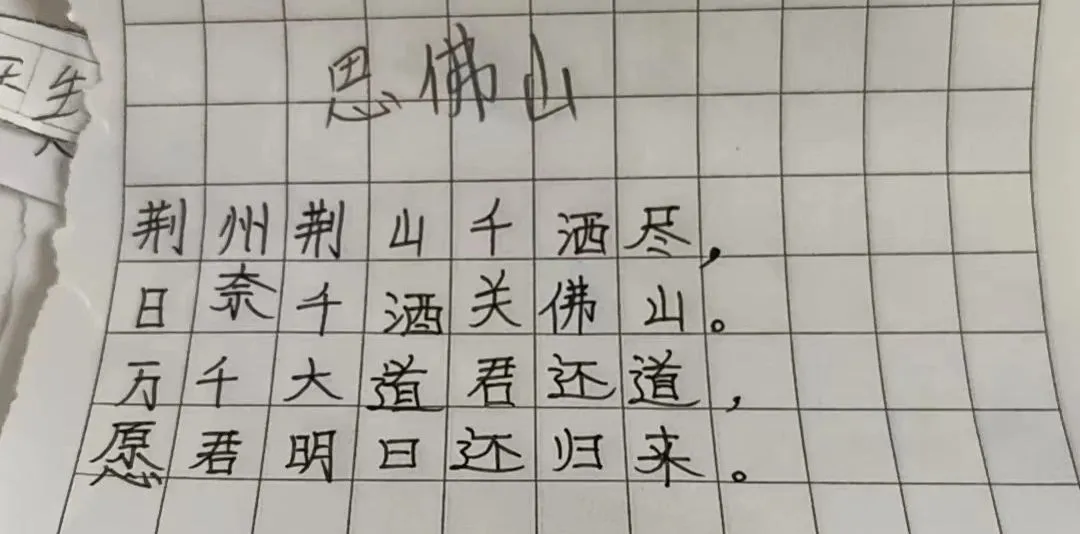 思佛山
荆州荆山千洒尽，
日奈千酒关佛山。
万千大道君还道，
愿君明日还归来。